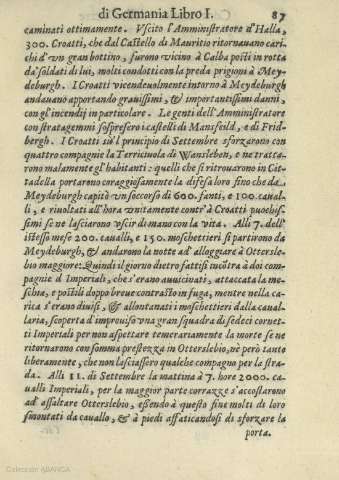 di Germania Libro I. 87
caminati ottimamente. Vscito l'Amministratore d'Halla,
300. Croatti, che dal Castello di Mauritio ritornauano cari-
chi d'vn gran bottino, furono vicino à Calba posti in rotta
da' soldati di lui, molti condotti con la preda prigioni à Mey-
deburgh. I Croatti vicendeuolmente intorno à Meydeburgh
andauano apportando grauissimi, & importantissimi danni,
con gl'incendij in particolare. Le genti dell'Amministratore
con stratagemmi sospresero i castelli di Mansfeild, e di Frid-
bergh. I Croatti su'l principio di Settembre sforzarono con
quattro compagnie la Terricíuola di Wansleben, e ne tratta-
rono malamente gl'habitanti: quelli che si ritrouarono in Cit-
tadella portarono coraggiosamente la difesa loro fino che da
Meydeburgh capitò vn soccorso di 600. fanti, e 100. caual-
li, e riuoltati all'hora vnitamente contr'à Croatti pochis-
simi se ne lasciarono vscir di mano con la vita. Alli 7. dell'
istesso mese 200. caualli, e 150. moschettieri si partirono da
Meydeburgh, & andarono la notte ad'alloggiare à Ottersle-
bio maggiore: Quindi il giorno dietro fattisi incõtra à doi com-
pagnie d'Imperiali, che s'erano auuicinati, attaccata la me-
schia, e postili doppo breue contrasto in fuga, mentre nella ca-
rica s'erano diuisi, & allontanati i moschettieri dalla caual-
laria, scoperta d'improuiso vna gran squadra di sedeci cornet-
ti Imperiali per non aspettare temerariamente la morte se ne
ritornarono con somma prestezza in Otterslebio, nè però tanto
liberamente, che non lasciassero qualche compagno per la stra-
da. Alli 11. di Settembre la mattina à 7. hore 2000. ca-
ualli Imperiali, per la maggior parte corrazze s'accostarono
ad'assaltare Otterslebio, essendo à questo fine molti di loro
smontati da cauallo, & à piedi affaticandosi di sforzare la
porta.
Colección ABANCA